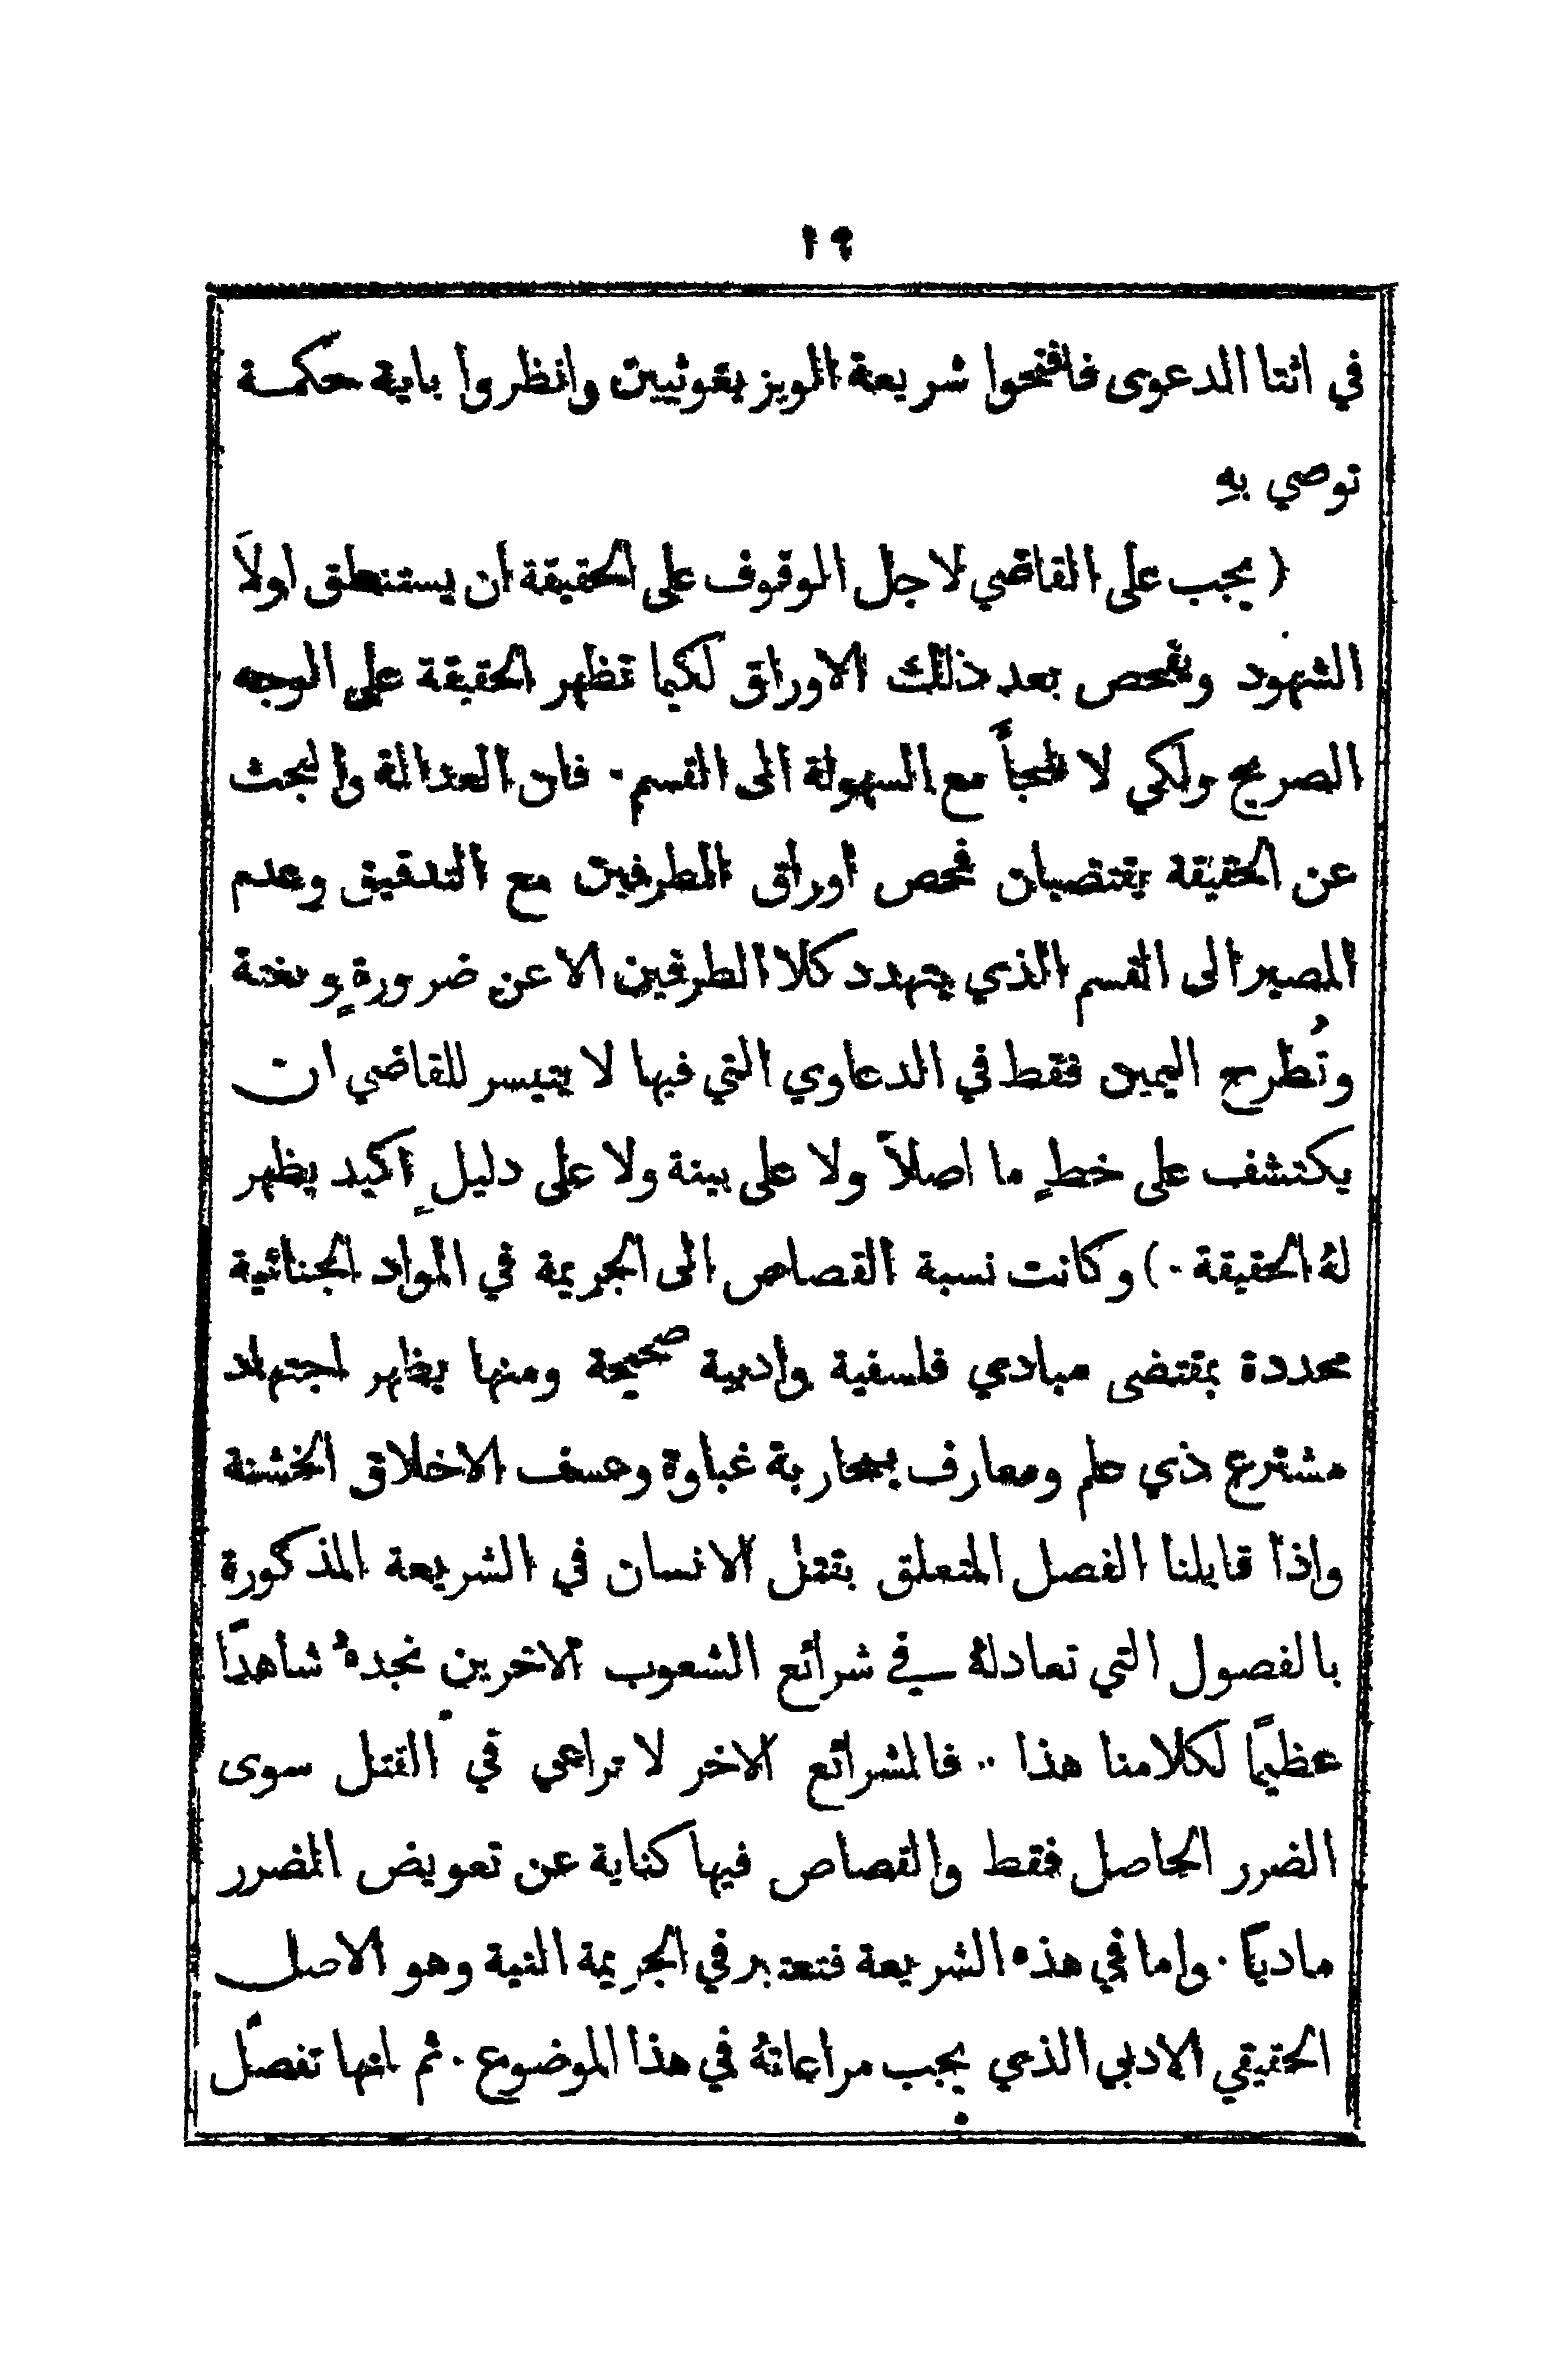 ٩١
في اثنا الدعوى فافتحوا شريعة الويز يقوثيين وانظروا باية حكمة
توصي بهِ
( يجب على القاضي لاجل الوقوف على الحقيقة ان يستنطق اولاً
الشهود ويفحص بعد ذلك الاوراق لكيما تظهر الحقيقة على الوجه
الصريح ولكي لا يُلجأ مع السهولة الى القسم . فان العدالة والبحث
عن الحقيقة يقتضيان فحص اوراق الطرفين مع التدقيق وعدم
المصير الى القسم الذي يتهدد كلا الطرفين الا عن ضرورةٍ وبغتة
وتُطرح اليمين فقط في الدعاوي التي فيها لا يتيسر للقاضي ان
يكتشف على خطٍ ما اصلاً ولا على بينة ولا على دليلٍ اكيد يظهر
لهُ الحقيقة . ) وكانت نسبة القصاص الى الجريمة في المواد الجنائية
محددة بمقتضى مبادي فلسفية وادبية صحيحة ومنها يظهر اجتهاد
مشترع ذي حلم ومعارف بمحاربة غباوة وعسف الاخلاق الخشنة
واذا قابلنا الفصل المتعلق بقتل الانسان في الشريعة المذكورة
بالفصول التي تعادلهُ في شرائع الشعوب الاخرين نجدهُ شاهدًا
عظيمًا لكلامنا هذا .. فالشرائع الاخر لا تراعي في القتل سوى
الضرر الحاصل فقط والقصاص فيها كناية عن تعويض المضرر
ماديًا . واما في هذه الشريعة فتعتبر في الجريمة النية وهو الاصل
الحقيقي الادبي الذي يجب مراعاتهُ في هذا الموضوع . ثم انها تفصّل